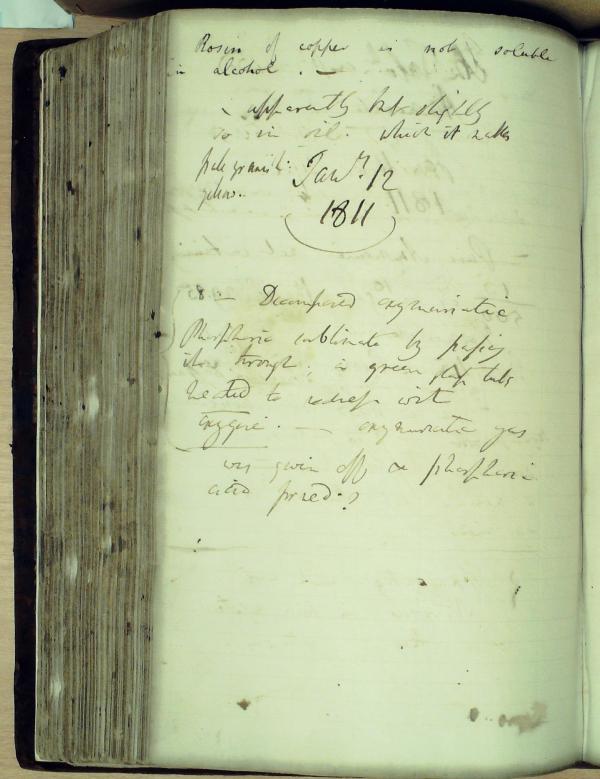 Rosin of copper is not soluble
in alcohol. —
apparently but slightly
so in oil. which it makes
pale greenish
yellow.
Jany. 12
1811
8 — Decomposed oxymuriatic
Phosphoric sublimate by passing
it through a green glass tube
heated to redness with
oxygene. — oxymuriatic gas
was given off & phosphoric
acid formed?